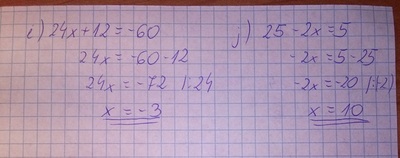 e) 24x+12=-60
24x = -60-12
24x = -72 |:24
x = -3
j) 25-2x=5
-2x=5-25
-2x=-20 |:(-2)
x = 10